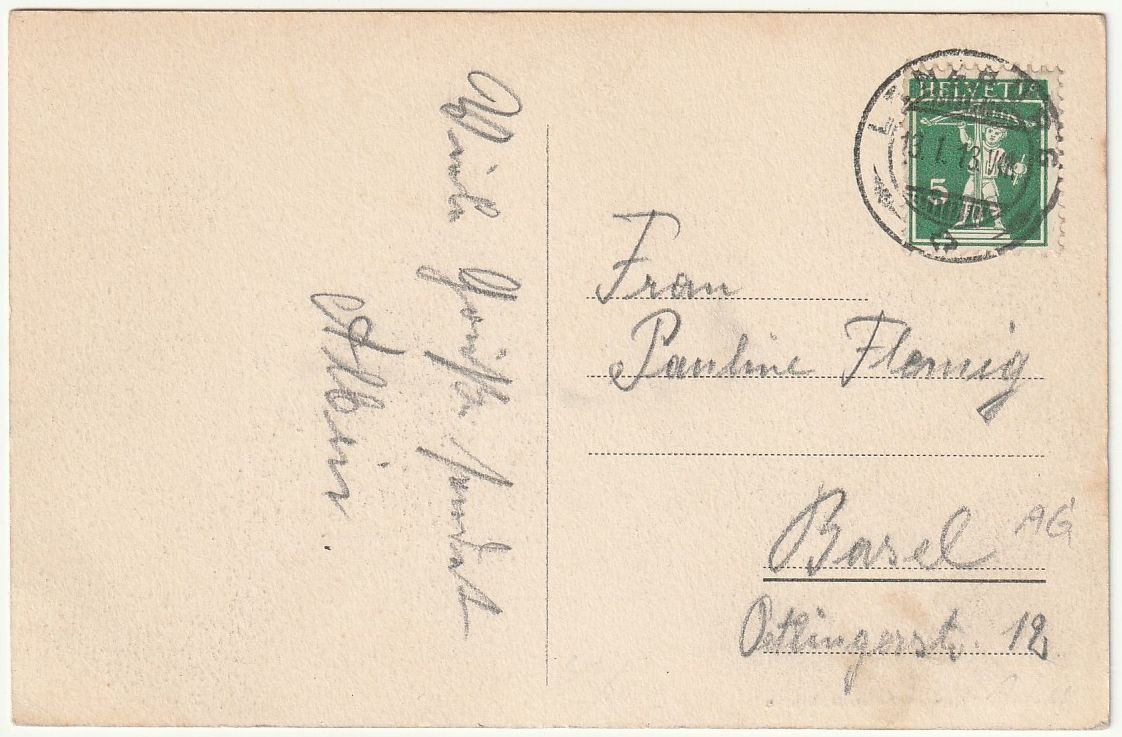 Viele Grüsse sendet
Albin
HELVETIA
5
LENZBURG
13. I. 13.
Frau
Pauline Flemig
Basel
AG
Oetlingerstr. 12